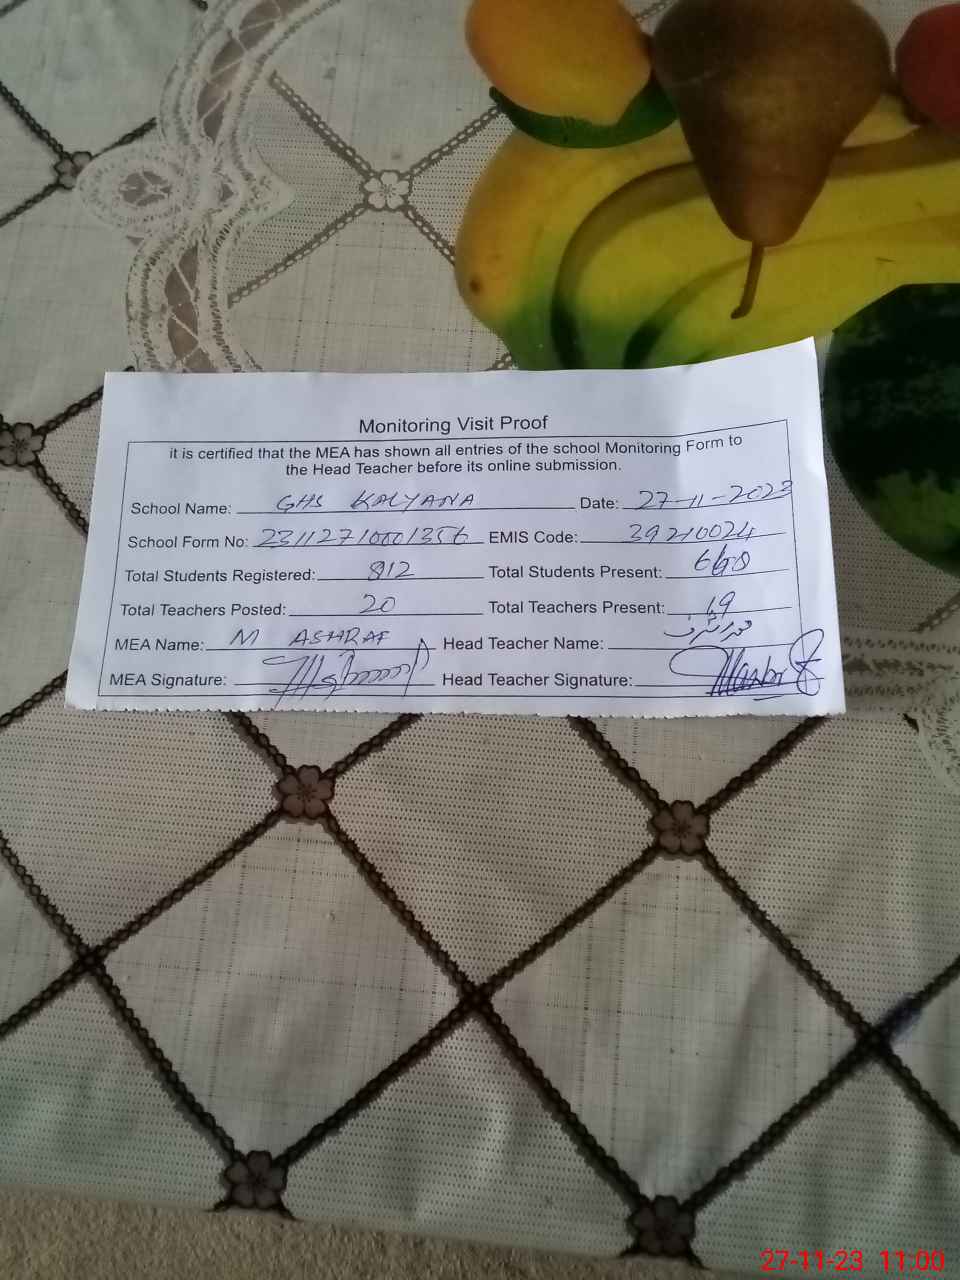 Monitoring Visit Proof
it is certified that the MEA has shown all entries of the school Monitoring Form to
the Head Teacher before its online submission.
School Name: GHS KALYANA Date: 27-11-2023
School Form No: 23112710001356 EMIS Code: 39210024
Total Students Registered: 812 Total Students Present:
Total Teachers Posted: 20 Total Teachers Present: 19
MEA Name: M ASHRAF Head Teacher Name:
MEA Signature: Head Teacher Signature:
27-11-23 11:00